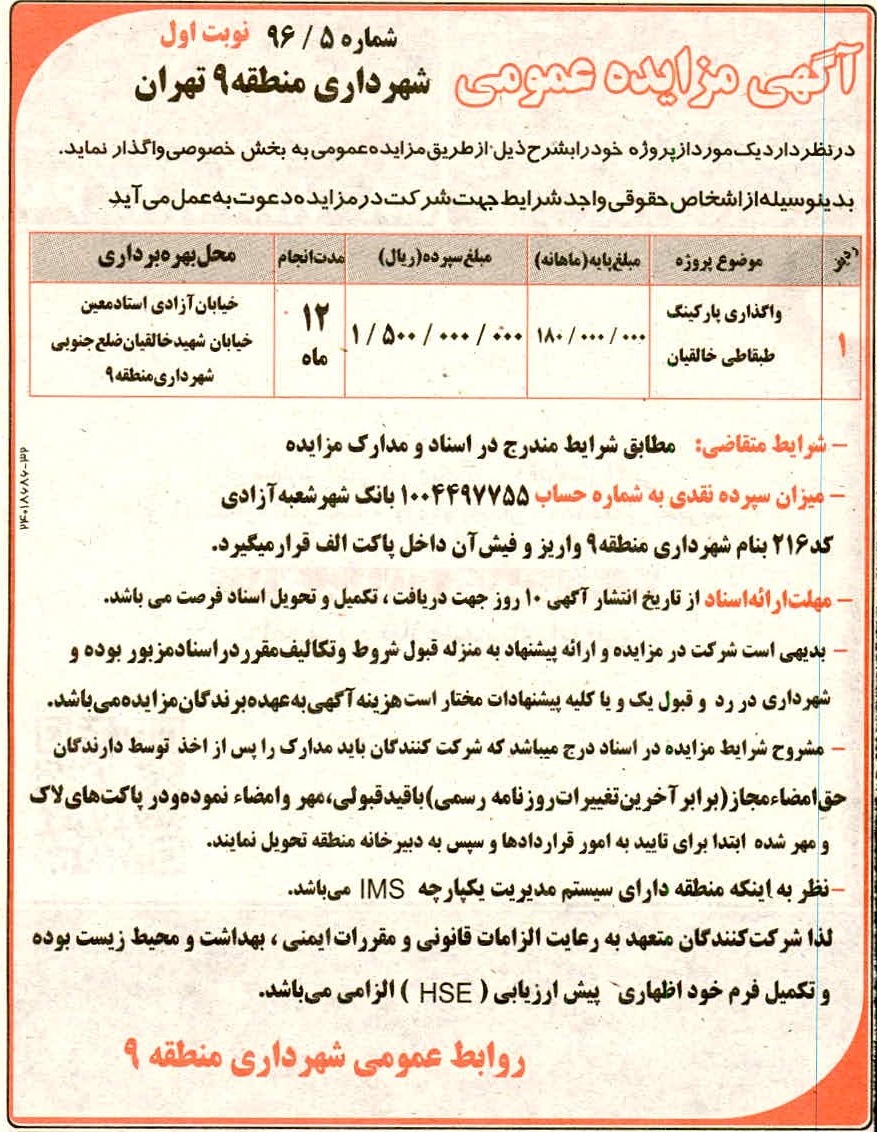 شماره ۵ / ۹۶ نوبت اول
آگهی مزایده عمومی شهرداری منطقه ۹ تهران
در نظر دارد یک مورد از پروژه خود را بشرح ذیل از طریق مزایده عمومی به بخش خصوصی واگذار نماید.
بدینوسیله از اشخاص حقوقی واجد شرایط جهت شرکت در مزایده دعوت به عمل می آید
موضوع پروژه مبلغ پایه (ماهانه) مبلغ سپرده (ریال) مدت انجام محل بهره برداری
۱ واگذاری پارکینگ طبقاطی خالقیان ۱۸۰/۰۰۰/۰۰۰ ۱/۵۰۰/۰۰۰/۰۰۰ ۱۲ ماه خیابان آزادی استاد معین
خیابان شهید خالقیان ضلع جنوبی
شهرداری منطقه ۹
– شرایط متقاضی: مطابق شرایط مندرج در اسناد و مدارک مزایده
– میزان سپرده نقدی به شماره حساب ۱۰۰۴۴۹۷۷۵۵ بانک شهر شعبه آزادی
کد ۲۱۶ بنام شهرداری منطقه ۹ واریز و فیش آن داخل پاکت الف قرار میگیرد.
– مهلت ارائه اسناد از تاریخ انتشار آگهی ۱۰ روز جهت دریافت ، تکمیل و تحویل اسناد فرصت می باشد.
– بدیهی است شرکت در مزایده و ارائه پیشنهاد به منزله قبول شروط و تکالیف مقرر در اسناد مزبور بوده و
شهرداری در رد و قبول یک و یا کلیه پیشنهادات مختار است هزینه آگهی به عهده برندگان مزایده می باشد.
– مشروح شرایط مزایده در اسناد درج میباشد که شرکت کنندگان باید مدارک را پس از اخذ توسط دارندگان
حق امضاء مجاز (برابر آخرین تغییرات روزنامه رسمی) با قید قبولی، مهر و امضاء نموده و در پاکت های لاک
و مهر شده ابتدا برای تایید به امور قراردادها و سپس به دبیرخانه منطقه تحویل نمایند.
– نظر به اینکه منطقه دارای سیستم مدیریت یکپارچه IMS می باشد.
لذا شرکت کنندگان متعهد به رعایت الزامات قانونی و مقررات ایمنی ، بهداشت و محیط زیست بوده
و تکمیل فرم خود اظهاری پیش ارزیابی ( HSE ) الزامی می باشد.
روابط عمومی شهرداری منطقه ۹